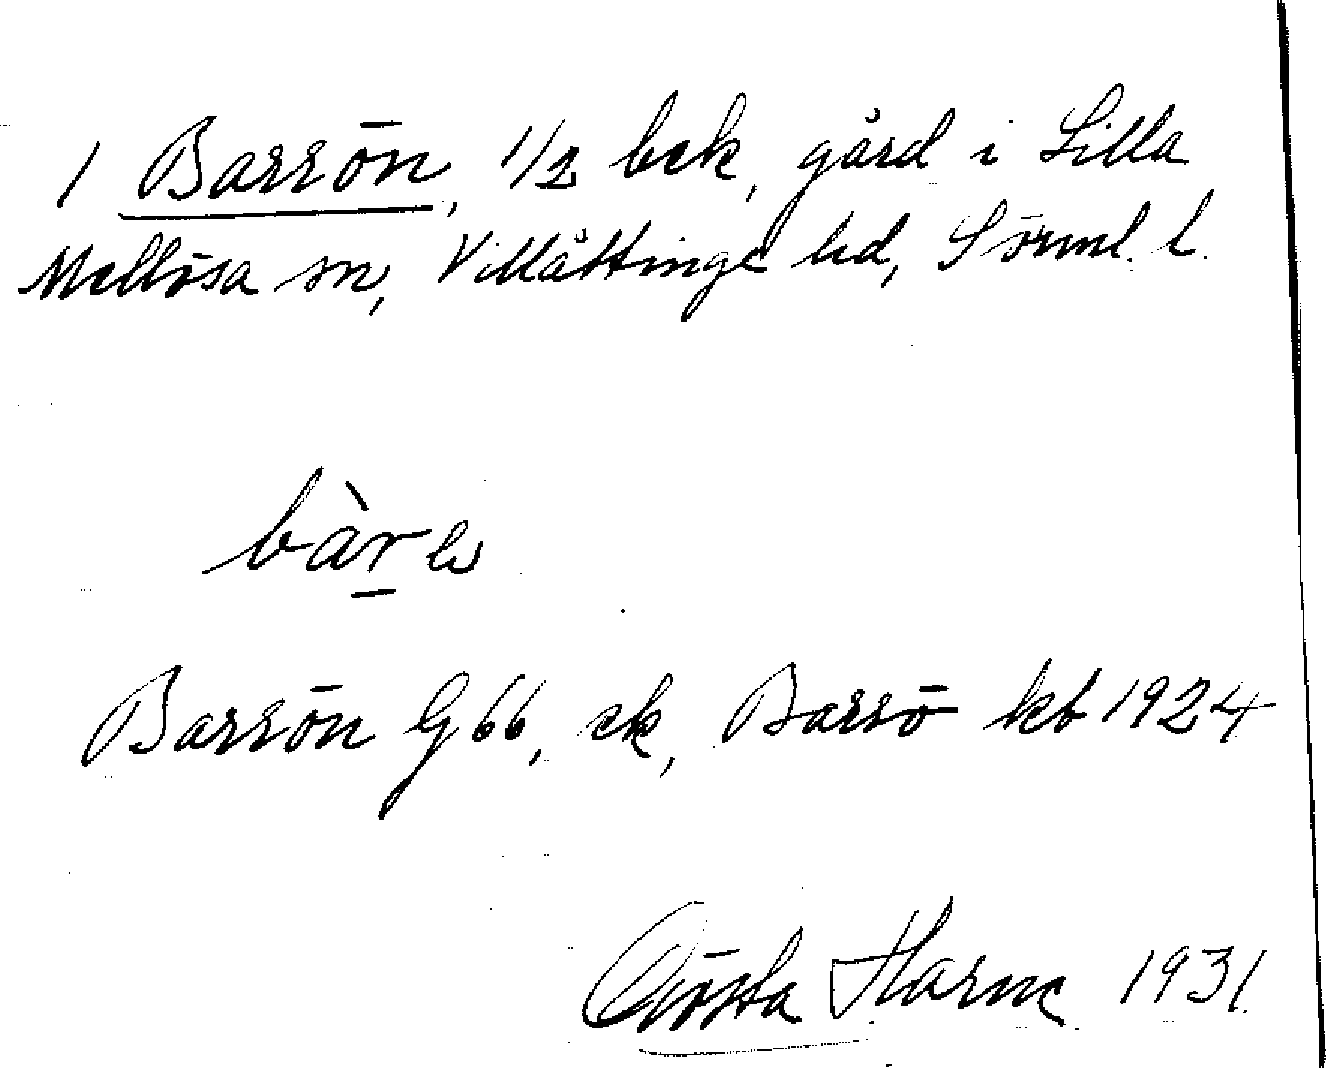 1 Barrön, 1/2 bek, gård i Lilla
Mellösa sn, Villåttinge hd, Sörml. l.
bàr
Barrön G66, ek, Barrö kb 1924
Gösta Harne 1931